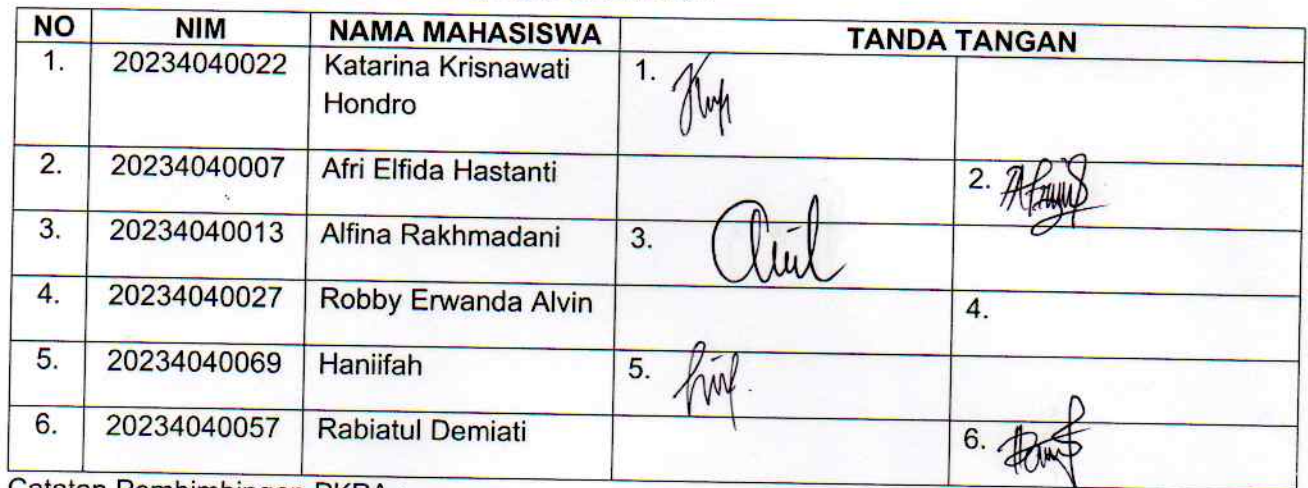 NO NIM NAMA MAHASISWA TANDA TANGAN
1. 20234040022 Katarina Krisnawati 1.
Hondro
2. 20234040007 Afri Elfida Hastanti 2.
3. 20234040013 Alfina Rakhmadani 3.
4. 20234040027 Robby Erwanda Alvin 4.
5. 20234040069 Haniifah 5.
6. 20234040057 Rabiatul Demiati 6.